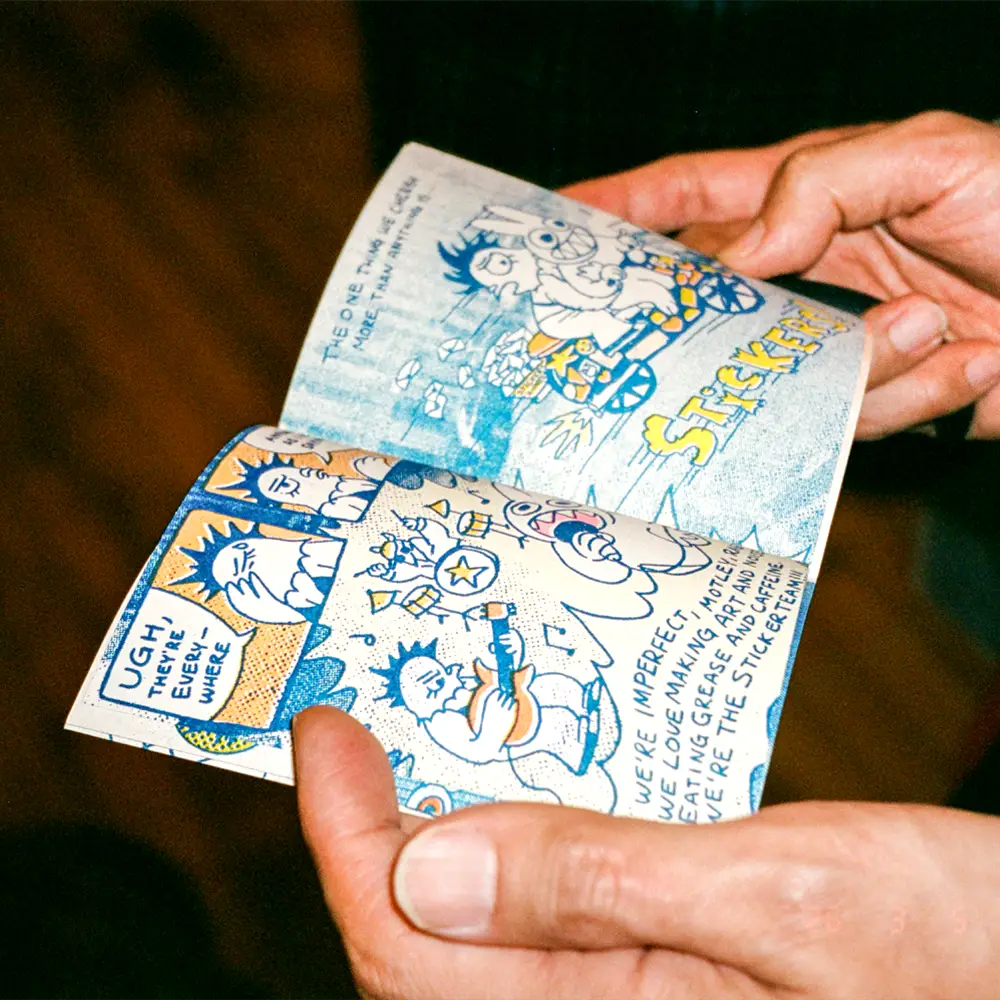 THE ONE THING WE CHERISH
MORE THAN ANYTHING IS
STICKERS!
UGH,
THEY'RE
EVERY-
WHERE
WE'RE IMPERFECT,
WE LOVE MAKING, MOTLEY,
EATING GREASE ART AND
WE'RE THE STICKER TEAM!!!
AND CAFFEINE